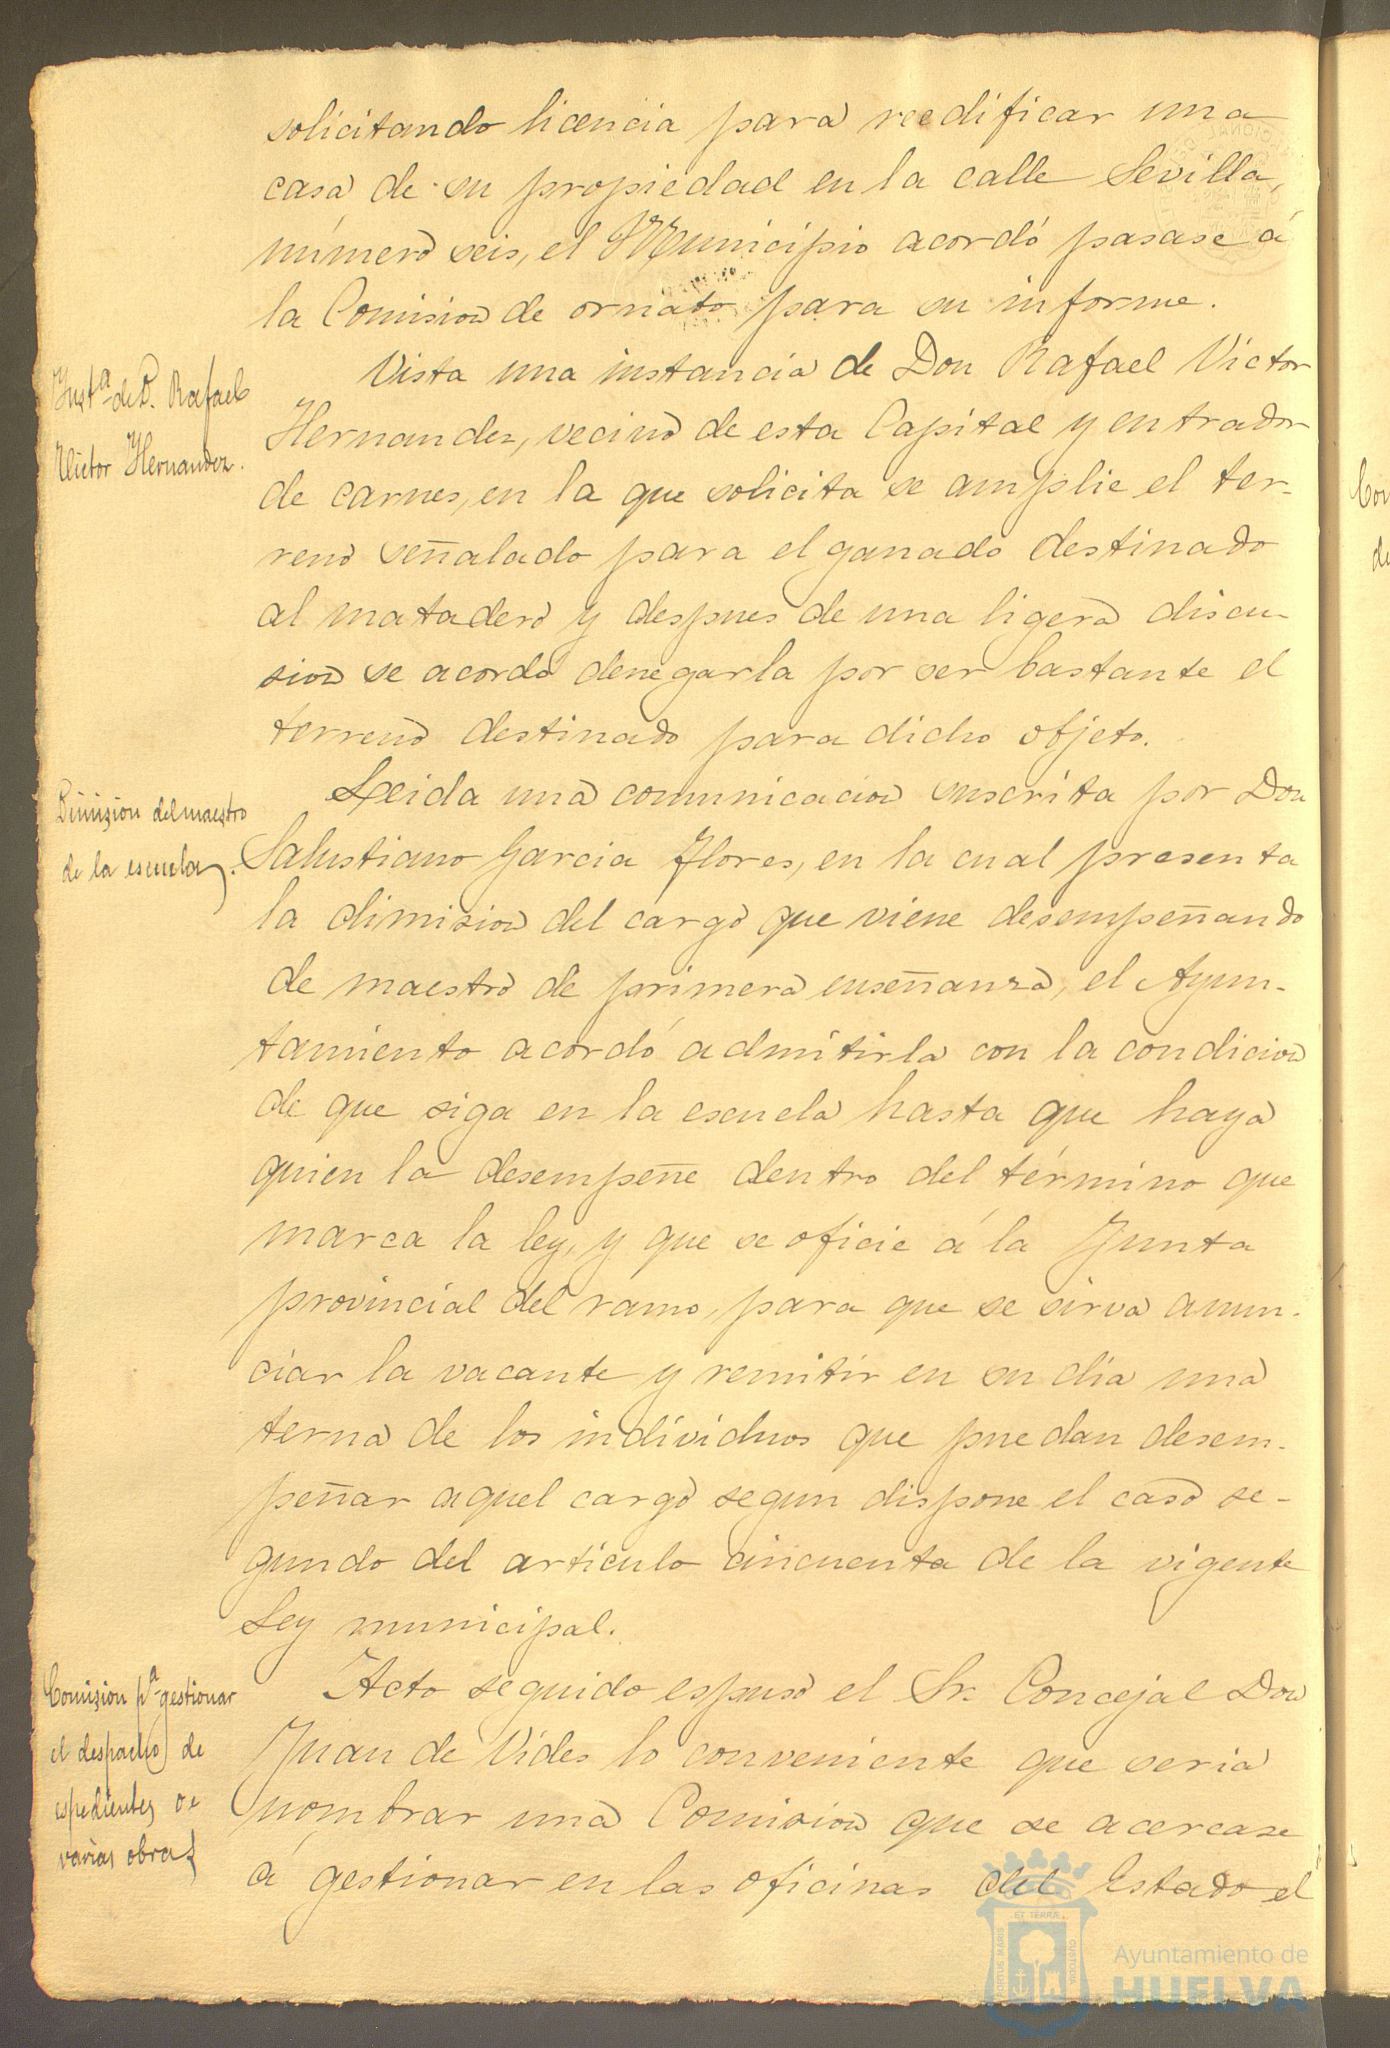 solicitando licencia para reedificar una
casa de su propiedad en la calle Sevilla,
número seis, el Municipio acordó pasase á
la Comision de ornato para su informe.
Inst.ª de D. Rafael
Victor Hernandez.
Vista una instancia de Don Rafael Victor
Hernandez, vecino de esta Capital y entrador
de carnes, en la que solicita se amplie el ter-
reno señalado para el ganado destinado
al matadero y despues de una ligera discu-
sion se acordó denegarla por ser bastante el
terreno destinado para dicho objeto.
Dimision del maestro
de la escuela.
Leida una comunicacion suscrita por Don
Salustiano Garcia Flores, en la cual presenta
la dimision del cargo que viene desempeñando
de maestro de primera enseñanza, el Ayun-
tamiento acordó admitirla con la condicion
de que siga en la escuela hasta que haya
quien la desempeñe dentro del término que
marca la ley, y que se oficie á la Junta
provincial del ramo, para que se sirva anun-
ciar la vacante y remitir en su dia una
terna de los individuos que puedan desem-
peñar aquel cargo segun dispone el caso se-
gundo del articulo cincuenta de la vigente
Ley municipal.
Comision p.ª gestionar
el despacho de
espedientes de
varias obras
Acto seguido espuso el Sr. Concejal Don
Juan de Vides lo conveniente que seria
nombrar una Comision que se acercase
á gestionar en las oficinas del Estado el
Ayuntamiento de
HUELVA